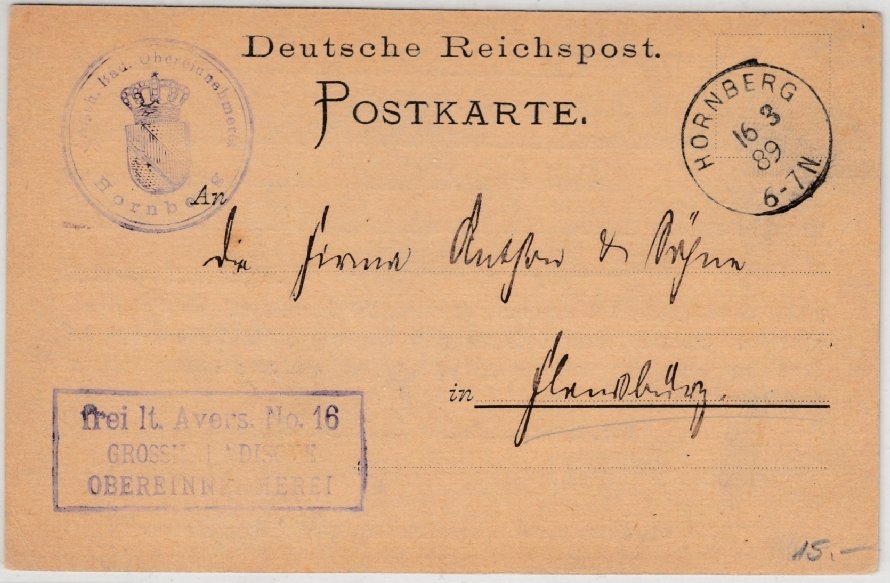 Deutsche Reichspost.
POSTKARTE.
Grossh. Bad. Obereinnehmerei
Hornberg
HORNBERG
16 3
89
6-7N
An
die Firma Anthon & Söhne
in Flensburg.
frei lt. Avers. No. 16
GROSSH. BADISCHE
OBEREINNEHMEREI
15.-